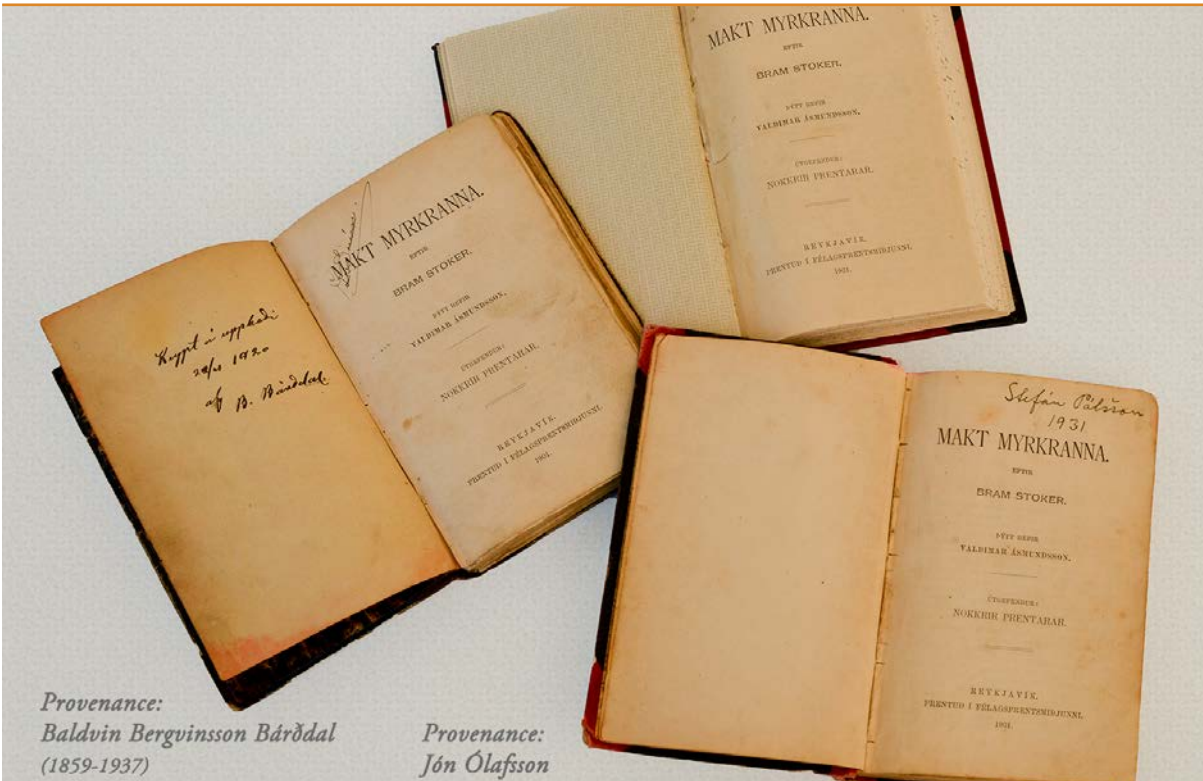 MAKT MYRKRANNA.
EFTIR
BRAM STOKER.
ÞÝTT HEFIR
VALDIMAR ÁSMUNDSSON.
ÚTGEFENDUR:
NOKKRIR PRENTARAR.
REYKJAVÍK.
PRENTUÐ Í FÉLAGSPRENTSMIÐJUNNI.
1901.
Keypt á uppboði
1920
af B. Bárðdal.
MAKT MYRKRANNA.
EFTIR
BRAM STOKER.
ÞÝTT HEFIR
VALDIMAR ÁSMUNDSSON.
ÚTGEFENDUR:
NOKKRIR PRENTARAR.
REYKJAVÍK.
PRENTUÐ Í FÉLAGSPRENTSMIÐJUNNI.
1901.
Stefán Pálsson
1931
MAKT MYRKRANNA.
EFTIR
BRAM STOKER.
ÞÝTT HEFIR
VALDIMAR ÁSMUNDSSON.
ÚTGEFENDUR:
NOKKRIR PRENTARAR.
REYKJAVÍK.
PRENTUÐ Í FÉLAGSPRENTSMIÐJUNNI.
1901.
Provenance:
Baldvin Bergvinsson Bárðdal
(1859-1937)
Provenance:
Jón Ólafsson